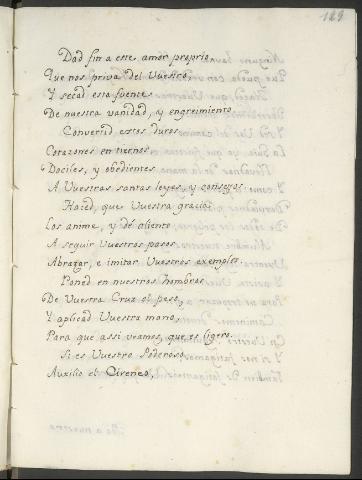 129
Dad fin a este amor proprio
Que nos priva del Vuestro,
Y secad esta fuente
De nuestra vanidad, y engreimiento.
Convertid estos duros
Corazones en tiernos
Dociles, y obedientes
A Vuestras santas leyes, y consejos.
Haced, que Vuestra gracia
Los anime, y dé aliento
A seguir Vuestros pasos
Abrazar, e imitar Vuestros exemplos.
Poned en nuestros hombros
De Vuestra Cruz el peso,
Y aplicad Vuestra mano,
Para que assi veamos, que es ligero.
Si es Vuestro Poderoso
Auxilio el Cireneo,